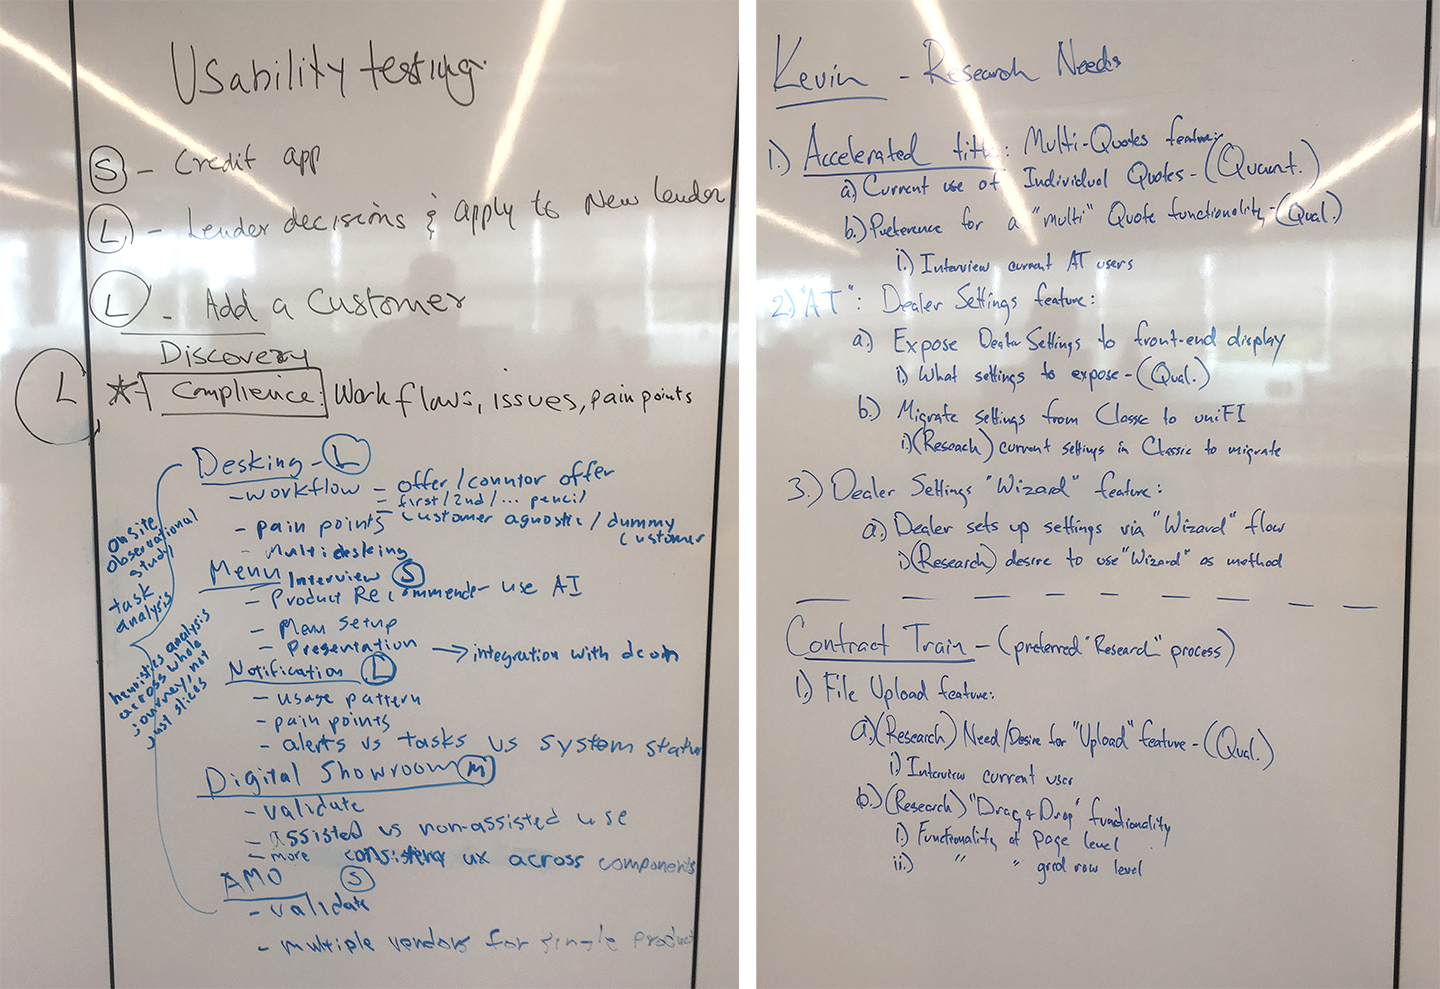 Usability testing
S - Credit app
L - Lender decisions & apply to New lender
L - Add a Customer
Discovery
L * Complience: Workflows, issues, pain points
Desking - L
- workflow - offer/countor offer
- first/2nd/... pencil
- pain points - customer agnostic/dummy customer
- Multidesking
Menu Interview S
- Product Recommender - use AI
- Menu Setup
- Presentation → integration with dcoin
Notification L
- usage pattern
- pain points
- alerts vs tasks vs system status
Digital Showroom M
- validate
- assisted vs non-assisted use
- more consistency ux across components
AMO S
- validate
- multiple vendors for single product
onsite
observational
study
task
analysis
heuristics analysis
across whole
journey, not
just slices
Kevin - Research Needs
1.) Accelerated title: Multi-Quotes feature:
a.) Current use of Individual Quotes - (Quant.)
b.) Preference for a "multi" Quote functionality - (Qual.)
i.) Interview current AT users
2.) "AT": Dealer Settings feature:
a.) Expose Dealer Settings to front-end display
i.) What settings to expose - (Qual.)
b.) Migrate settings from Classic to uniFI
i.) (Reseach) current settings in Classic to migrate
3.) Dealer Settings "Wizard" feature:
a.) Dealer sets up settings via "Wizard" flow
i.) (Research) desire to use "Wizard" as method
Contract Train - (preferred "Research" process)
1.) File Upload feature:
a.) (Research) Need/Desire for "Upload" feature - (Qual.)
i.) Interview current user
b.) (Research) "Drag & Drop" functionality
i.) Functionality at page level
ii.) " " grid row level